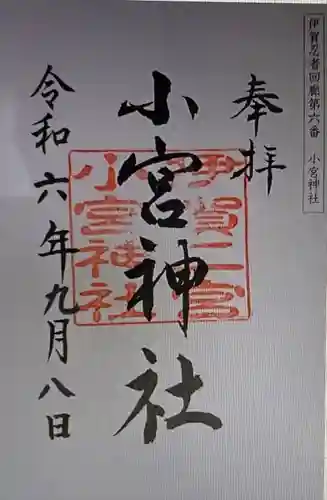 伊賀忍者回廊第六番 小宮神社
奉拝
伊賀二宮
小宮神社
小宮神社
令和六年九月八日